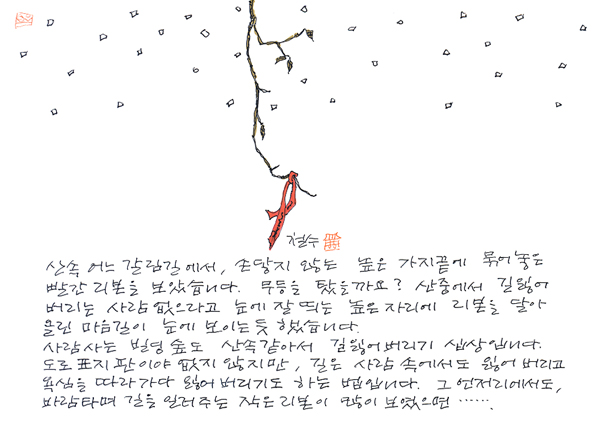 철수
산속 어느 갈림길에서, 손닿지 않는 높은 가지끝에 묶어놓은
빨간 리본을 보았습니다. 무등을 탔을까요? 산중에서 길잃어
버리는 사람 없으라고 눈에 잘 띄는 높은 자리에 리본을 달아
올린 마음길이 눈에 보이는듯 했습니다.
사람사는 빌딩 숲도 산속같아서 길잃어버리기 십상입니다.
도로표지판이야 없지 않지만, 길은 사람 속에서도 잃어버리고
욕심을 따라가다 잃어버리기도 하는 법입니다. 그 언저리에서도,
바람타며 길을 일러주는 작은 리본이 많이 보였으면 ......